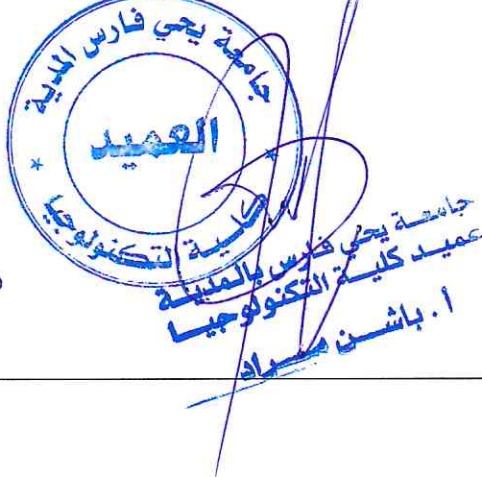 جامعة يحي فارس المدية
العميد
كلية التكنولوجيا
جامعة يحي فارس بالمدية
عميد كلية التكنولوجيا
أ. باشن مراد